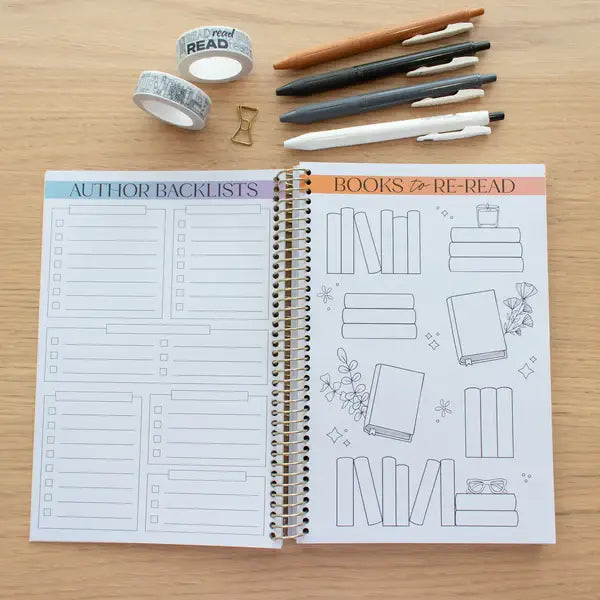 READ read
READ read
AUTHOR BACKLISTS
BOOKS to RE-READ